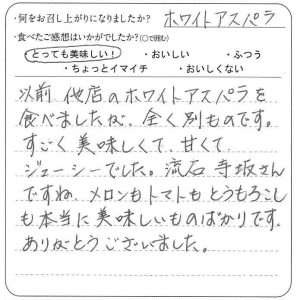 ・何をお召し上がりになりましたか? ホワイトアスパラ
・食べたご感想はいかがでしたか?(○で囲む)
とっても美味しい! ・おいしい ・ふつう
・ちょっとイマイチ ・おいしくない
以前 他店のホワイトアスパラを
食べましたが、全く別ものです。
すごく美味しくて、甘くて、
ジューシーでした。流石 寺坂さん
ですね、メロンもトマトもとうもろこし
も本当に美味しいものばかりです。
ありがとうございました。